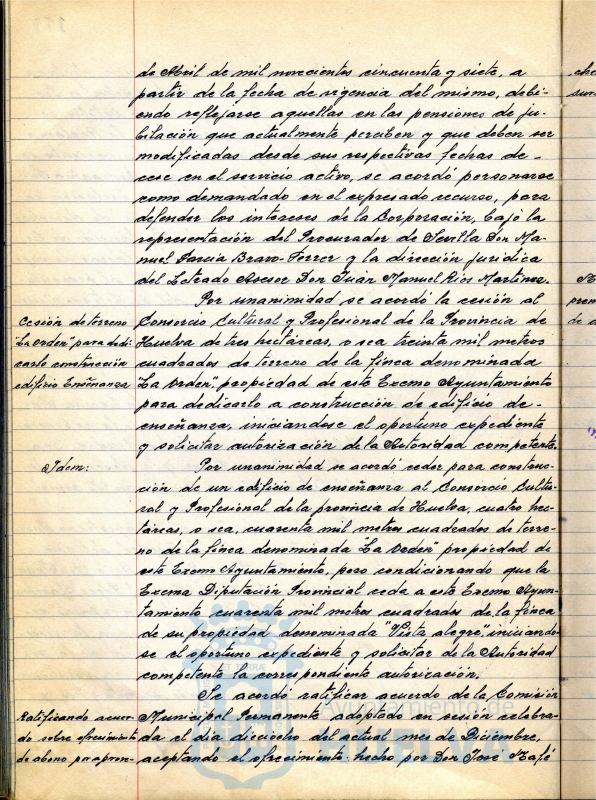 de Abril de mil novecientos cincuenta y siete, a
partir de la fecha de urgencia del mismo, debi-
endo reflejarse aquellas en las pensiones de ju-
bilación que actualmente perciben y que deben ser
modificadas desde sus respectivas fechas de-
cese en el servicio activo, se acordó personarse
como demandado en el expresado recurso, para
defender los intereses de la Corporación, bajo la
representación del Procurador de Sevilla Don Ma-
nuel García Bravo-Ferrer y la dirección jurídica
del Letrado Asesor Don Juan Manuel Rios Martinez.
Por unanimidad se acordó la cesión al
Cesión de terreno
Consorcio Cultural y Profesional de la Provincia de
"La Orden", para dedi-
Huelva de tres hectáreas, o sea treinta mil metros
carlo construcción
cuadrados de terreno de la finca denominada
edificio Enseñanza
"La Orden", propiedad de este Excmo Ayuntamiento
para dedicarlo a construcción de edificio de-
enseñanza, iniciandose el oportuno expediente
y solicitar autorización de la Autoridad competente.
Idem:
Por unanimidad se acordó ceder para construc-
ción de un edificio de enseñanza al Consorcio Cultu-
ral y Profesional de la provincia de Huelva, cuatro hec-
táreas, o sea, cuarenta mil metros cuadrados de terre-
no de la finca denominada "La Orden" propiedad de
este Excmo Ayuntamiento, pero condicionando que la
Excma Diputación Provincial ceda a este Excmo Ayun-
tamiento cuarenta mil metros cuadrados de la finca
de su propiedad denominada "Vista alegre", iniciando-
se el oportuno expediente y solicitar de la Autoridad
competente la correspondiente autorización.
Se acordó ratificar acuerdo de la Comisión
Ratificando acuer-
Municipal Permanente adoptado en sesión celebra-
do sobre ofrecimiento
da el día dieciocho del actual mes de Diciembre,
de abono por aprove-
aceptando el ofrecimiento hecho por Don José
Ayuntamiento de
HUELVA